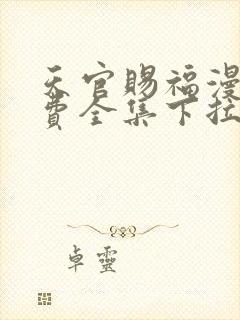 天官赐福漫
费全集下拉
卓靈